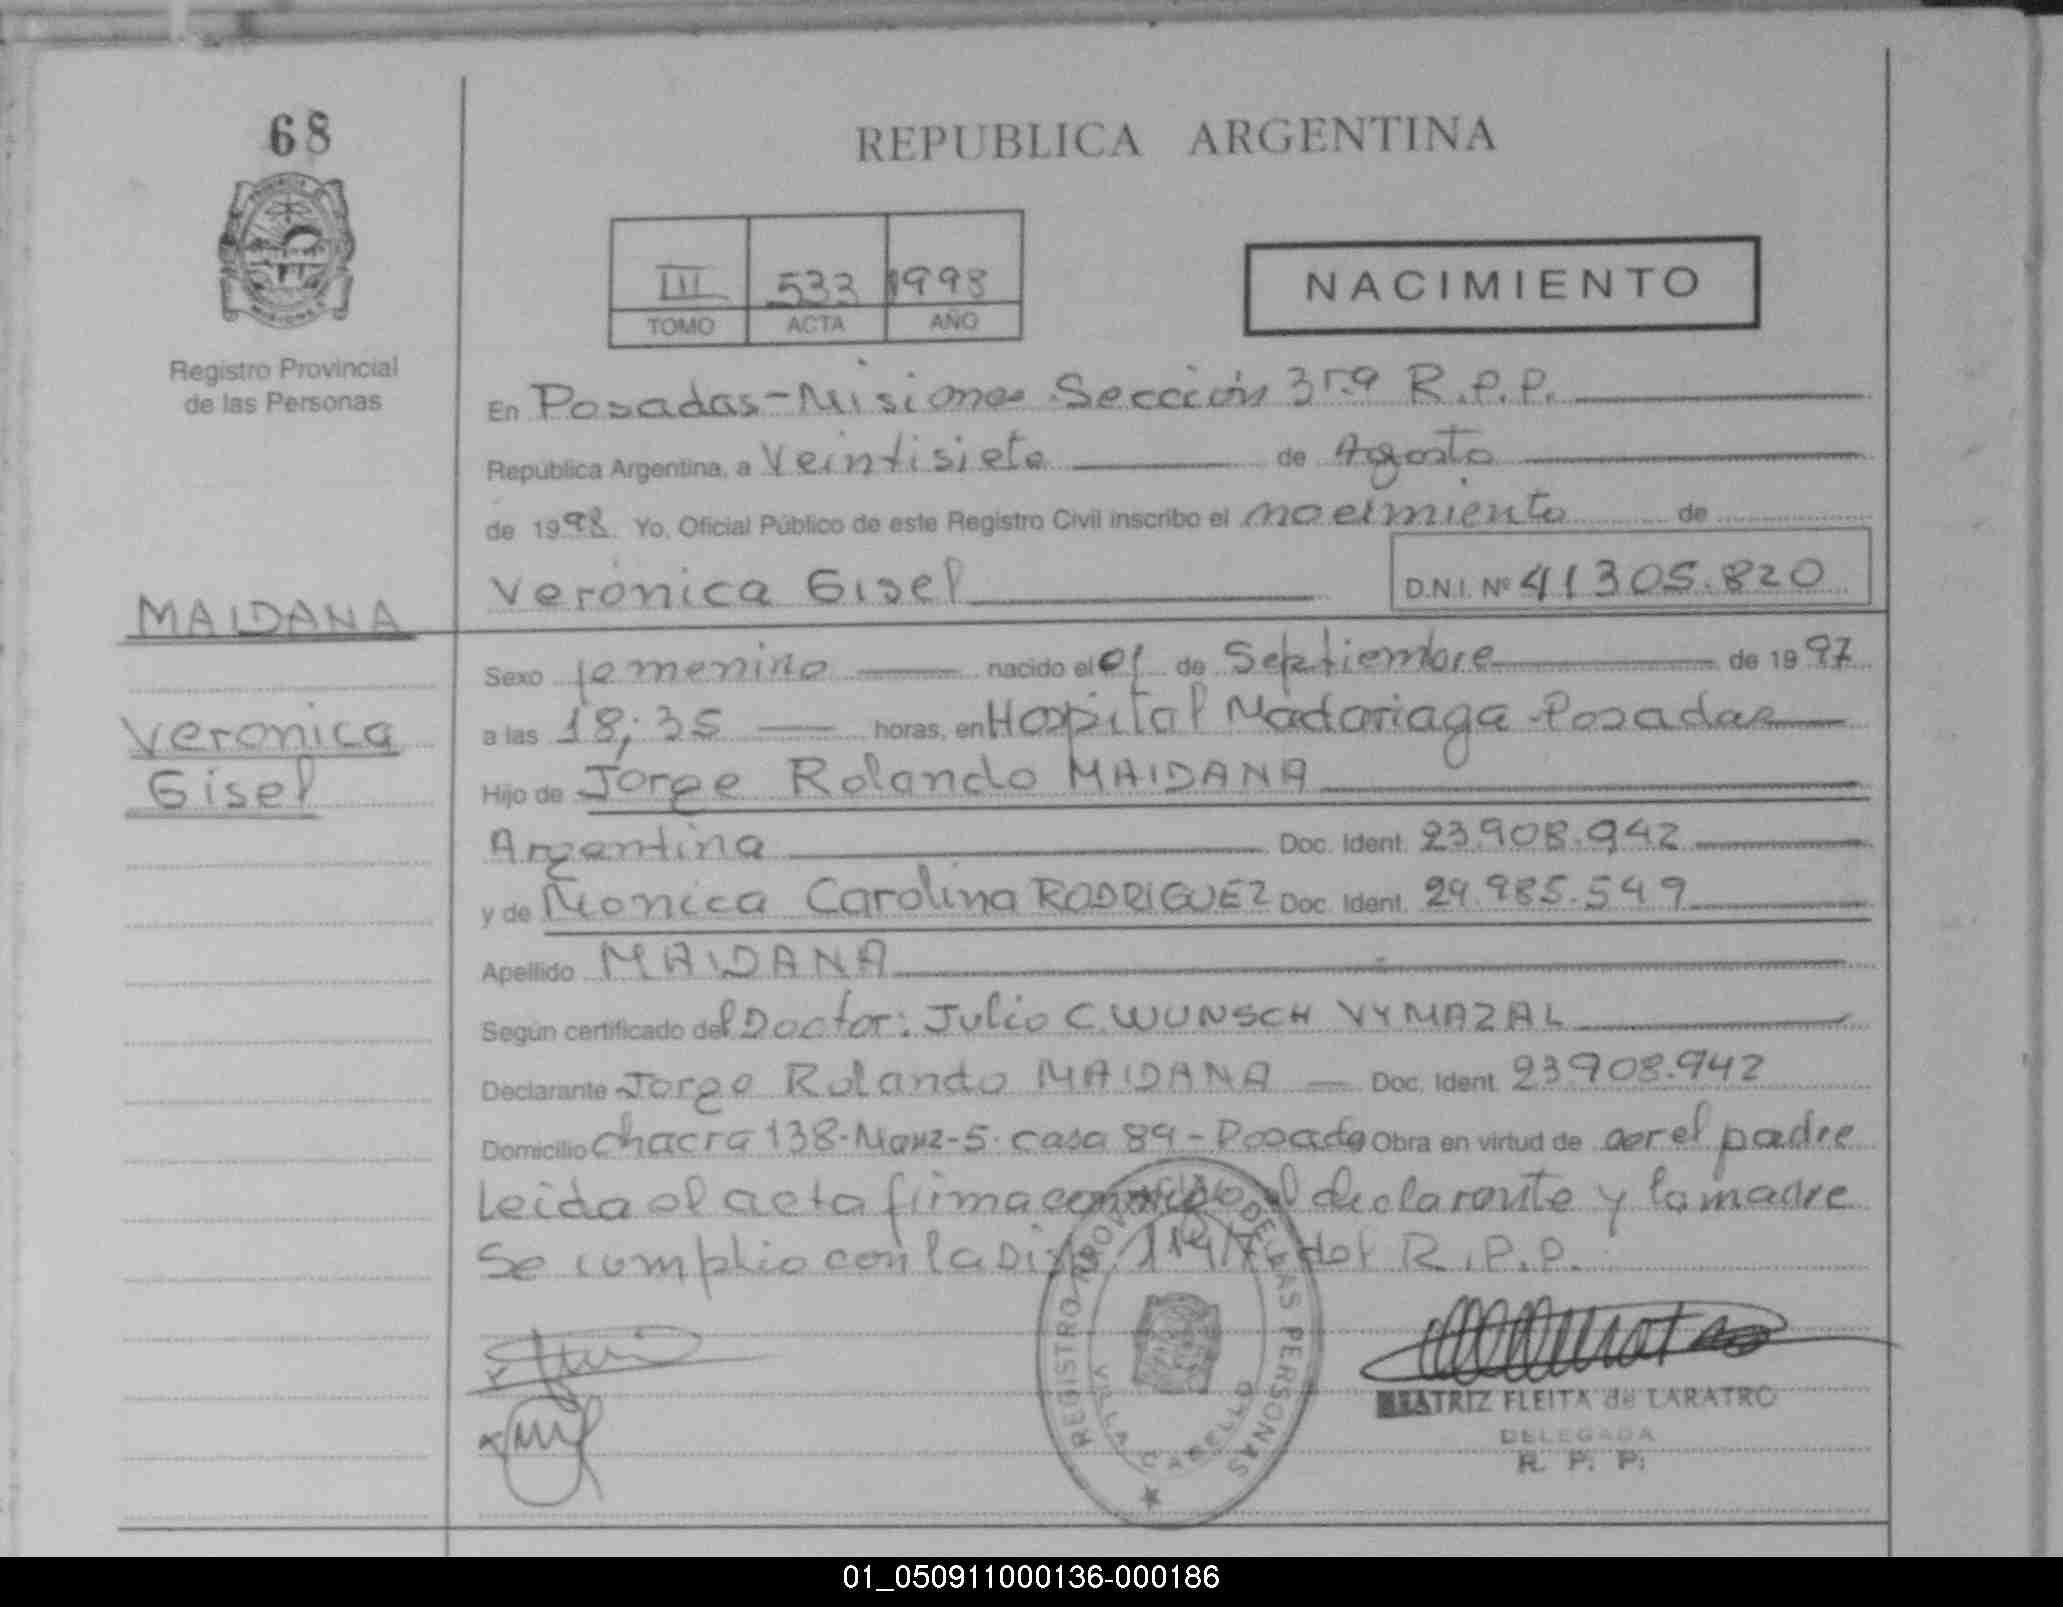 68
REPUBLICA ARGENTINA
III 533 1998
TOMO ACTA AÑO
NACIMIENTO
Registro Provincial
de las Personas
En Posadas-Misiones Sección R.P.P.
Republica Argentina, a Veintisiete de Agosto
de 1998 Yo, Oficial Público de este Registro Civil inscribo el nacimiento de
Verónica Gisel D.N.I. Nº 41305.820
MAIDANA
Veronica
Gisel
Sexo femenino nacido el 01 de Septiembre de 1997
a las 18;35 horas, en Hospital Madariaga-Posadas
Hijo de Jorge Rolando MAIDANA
Argentina Doc. Ident. 23.908.942
y de Monica Carolina RODRIGUEZ Doc. Ident. 29.985.549
Apellido MAIDANA
Según certificado del Doctor: Julio C. WUNSCH VYMAZAL
Declarante Jorge Rolando MAIDANA Doc. Ident. 23.908.942
Domicilio chacra 138-Manz-5. casa 89-Posadas Obra en virtud de ser el padre
Leida el acta firma conmigo el declarante y la madre
Se cumplio con la Disp. del R.P.P.
REGISTRO PROVINCIAL DE LAS PERSONAS
VILLA CABELLO
BEATRIZ FLEITA de LARATRO
DELEGADA
R. P. P.
01_050911000136-000186